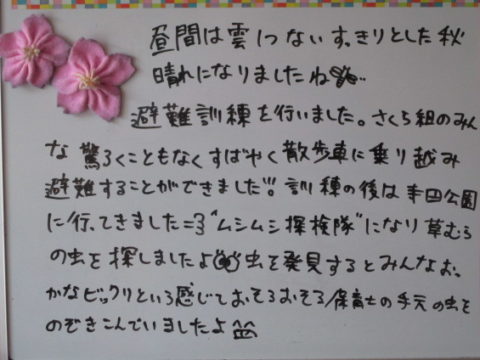 昼間は雲1つないすっきりとした秋
晴れになりましたね
避難訓練を行いました。さくら組のみん
な驚ろくこともなくすばやく散歩車に乗り込み
避難することができました!!! 訓練の後は 公園
に行ってきました=3 "ムシムシ探検隊"になり草むら
の虫を探しましたよ 虫を発見するとみんなお、
かなビックリという感じでおそるおそる保育士の手元の虫を
のぞきこんでいましたよ